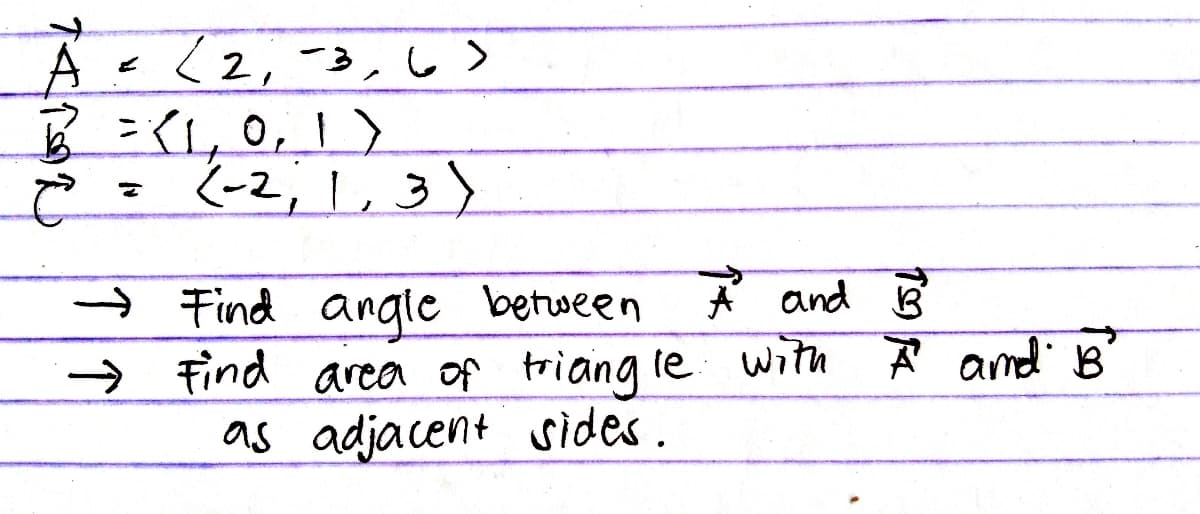 A⃗ = ⟨2, -3, 6⟩
B⃗ = ⟨1, 0, 1⟩
C⃗ = ⟨-2, 1, 3⟩
→ Find angle between A⃗ and B⃗
→ Find area of triangle with A⃗ and B⃗
as adjacent sides.